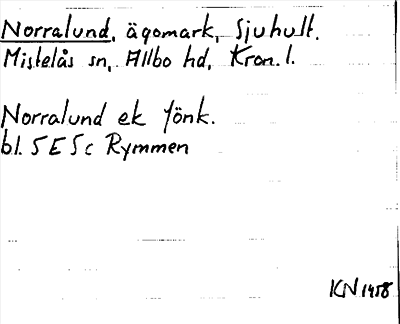 Norralund, ägomark, Sjuhult.
Mistelås sn, Allbo hd, Kron. l.
Norralund ek Jönk.
bl. 5 E 5 c Rymmen
KN 1958